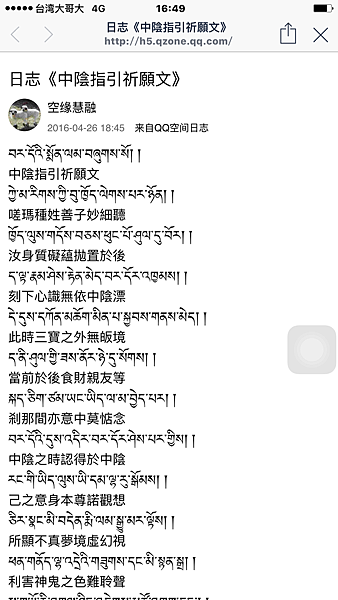 台湾大哥大 4G 16:49
日志《中陰指引祈願文》
http://h5.qzone.qq.com/
日志《中陰指引祈願文》
空缘慧融
2016-04-26 18:45 来自QQ空间日志
བར་དོའི་སྨོན་ལམ་བཞུགས་སོ། །
中陰指引祈願文
ཀྱེ་མ་རིགས་ཀྱི་བུ་ཁྱོད་ལེགས་པར་ཉོན། །
嗟瑪種姓善子妙細聽
ཁྱོད་ལུས་གདོས་བཅས་ཕུང་པོ་ཤུལ་དུ་བོར། །
汝身質礙蘊拋置於後
ད་ལྟ་རྣམ་ཤེས་རྟེན་མེད་བར་དོར་འཁྱམས། །
刻下心識無依中陰漂
དེ་དུས་དཀོན་མཆོག་མིན་པ་སྐྱབས་གནས་མེད། །
此時三寶之外無皈境
ད་ནི་ཤུལ་གྱི་ཟས་ནོར་ཉེ་དུ་སོགས། །
當前於後食財親友等
སྐད་ཅིག་ཙམ་ཡང་ཡིད་ལ་མ་བྱེད་པར། །
剎那間亦意中莫惦念
བར་དོའི་དུས་འདིར་བར་དོར་ཤེས་པར་གྱིས། །
中陰之時認得於中陰
རང་གི་ཡིད་ལུས་ཡི་དམ་ལྷ་རུ་སྒོམས། །
己之意身本尊諾觀想
ཅིར་སྣང་མི་བདེན་རྨི་ལམ་སྒྱུ་མར་ལྟོས། །
所顯不真夢境虛幻視
ཕན་གནོད་ལྷ་འདྲེའི་གཟུགས་དང་མི་སྙན་སྒྲ། །
利害神鬼之色難聆聲